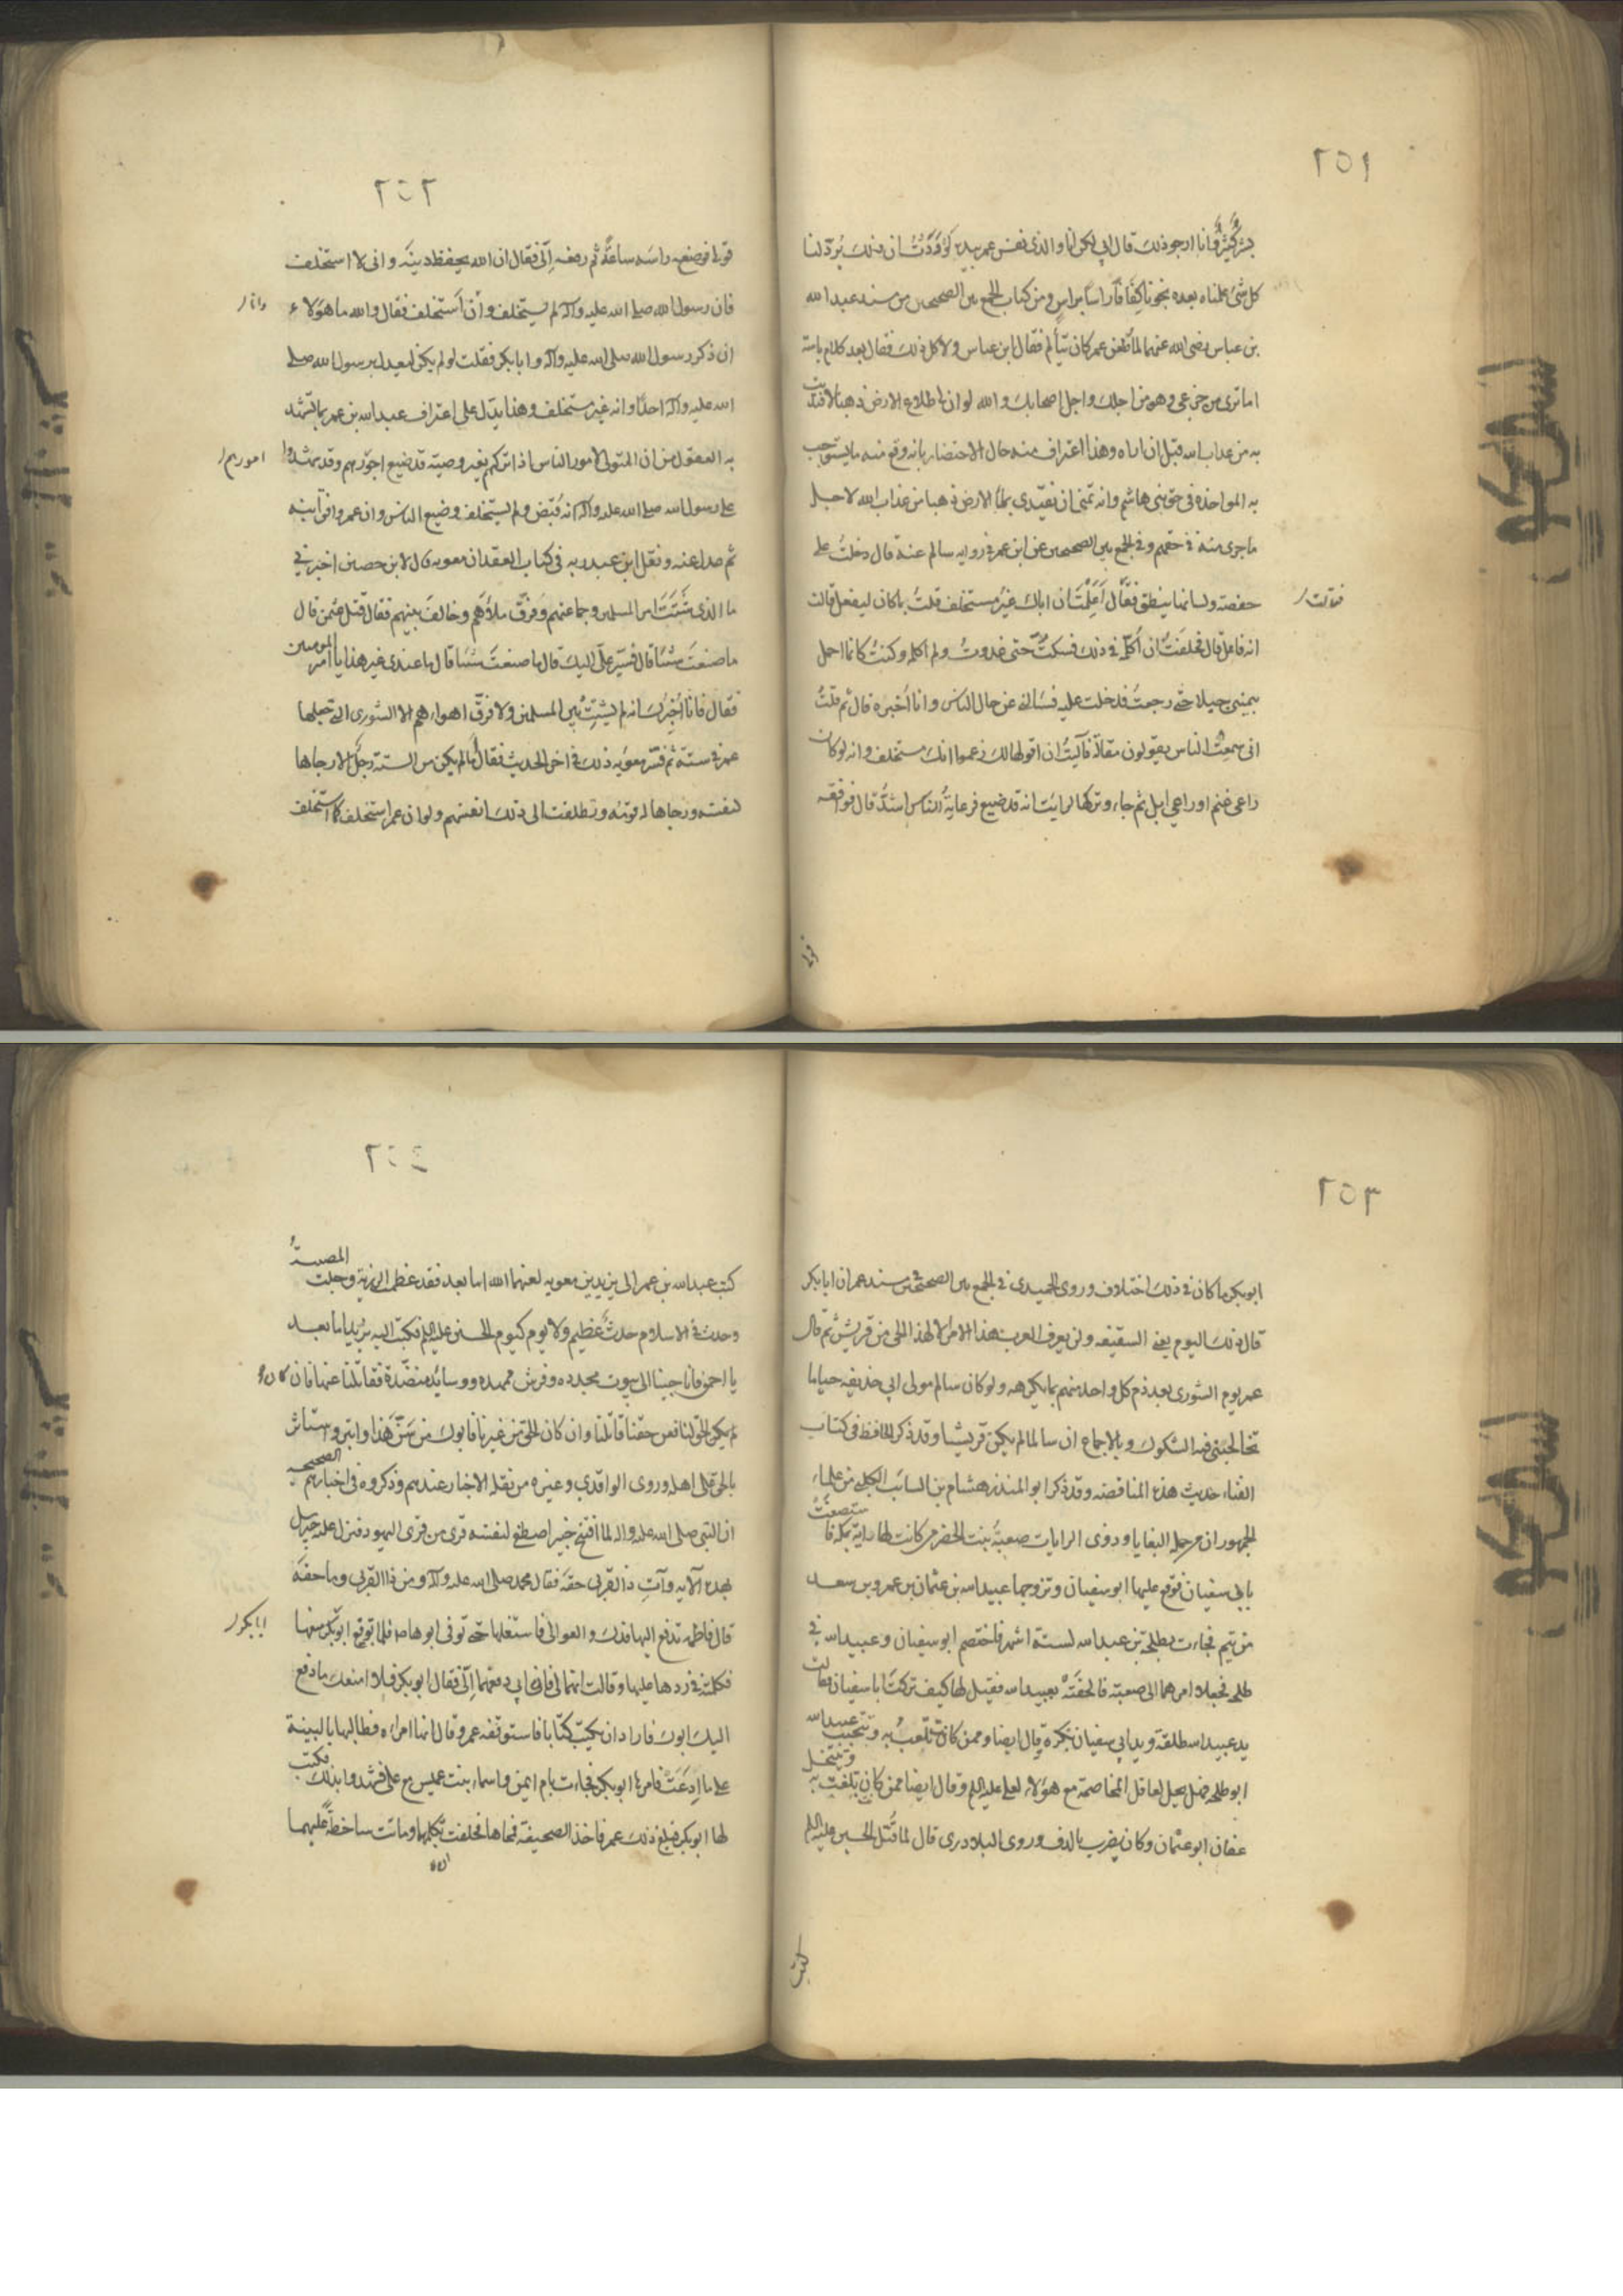 ٢٥١
بشر كثير وانا ارجو ذلك قال ابي لكن انا والذي نفس عمر بيده لَوَدَدْتُ ان ذلك يُردّ لنا
كل شئ علمناه بعده نجونا كِفَافًا راسا براسٍ ومن كتاب الجمع بين الصحيحين من مسند عبد الله
بن عباس رضى الله عنهما لما طعن عمر كان يتألم فقال ابن عباس ولا كل ذلك فقال بعد كلام
اما ترى من جزعى وهو من اجلك واجل اصحابك والله لو ان لى طلاع الارض ذهبا لافتديت
به من عذاب الله قبل ان اراه وهذا اعتراف منه حال الاحتضار بانه وقع منه ما يستوجب
به المواخذه فى حق بنى هاشم وانه تمنى ان يفتدى بملأ الارض ذهبا من عذاب الله لاجل
ماجرى منه فى حقهم وفى الجمع بين الصحيحين عن ابن عمر فى روايه سالم عنه قال دخلتُ على
حفصة ولسانها ينطق فقال أعَلِمْتَ ان اباك غيرُ مستخلف قلتُ ما كان ليفعل قالت
فقالت
انه فاعل قال فحلفتُ ان أكلّمه فى ذلك فسكتُّ حتى غدوتُ ولم اكلمه وكنتُ كانما احمل
بيمينى جبلا حتى رجعتُ فدخلت عليه فسالنى عن حال الناس وانا اُخبره قال ثم قلتُ
انى سمعتُ الناس يقولون مقالة فآليتُ ان اقولها لك زعموا انك مستخلف وانه لو كان
راعى غنم او راعى ابل ثم جاء وتركها لرايت انه قد ضيع فرعايةُ الناس اشدُّ قال فوافقه
قولى
٢٥٢
قولى فوضع راسَه ساعةً ثم رفعه اِلَىّ فقال ان الله يحفظ دينَه وانى لا استخلف
فان رسول الله صلى الله عليه وآله لم يستخلف وان استخلف فقال والله ما هو الا
ان ذكر رسول الله صلى الله عليه وآله وابا بكر فقلت لم يكن ليعدل برسول الله صلى
الله عليه وآله احدًا وانه غير مستخلف وهذا يدل على اعتراف عبد الله بن عمر بما تشهد
به العقول من ان المتولى لامور الناس اذا تركهم بغير وصية قد ضيع امورهم وقد شهدوا
امورهم
على رسول الله صلى الله عليه وآله انه قُبِض ولم يستخلف وضيع الناس وان عمر وافق ابنه
ثم عدل عنه ونقل ابن عبد ربه فى كتاب العقد ان معويه قال لابن حصين اخبرنى
ما الذى شَتَّتَ امر المسلمين وجماعتهم وفرّق ملأهم وخالف بينهم فقال قتل عثمن قال
ما صنعتَ شيئا قال فسير علىّ اليك قال ما صنعتَ شيئا قال ما عندى غير هذا يا امير المومنين
فقال فانا أُخْبِرُك انه لم يشتت بين المسلمين ولا فرق اهواءهم الا الشورى التى جعلها
عمر فى ستة ثم فسّر معويه ذلك فى اخر الحديث فقال لم يكن من الستة رجل الا رجاها
لنفسه ورجاها له قومه وتطلعت الى ذلك انفسهم ولو ان عمر استخلف كما استخلف
٢٥٣
ابو بكر ما كان فى ذلك اختلاف وروى الحميدى فى الجمع بين الصحيحين فى مسند عمر ان ابا بكر
قال ذلك اليوم يعنى السقيفه ولن يعرف العرب هذا الامر الا لهذا الحى من قريش ثم قال
عمر يوم الشورى بعد ذم كل واحد منهم بما يكرهه ولو كان سالم مولى ابى حذيفه حيا ما
تخالجتنى فيه الشكوك وبالاجماع ان سالما لم يكن قريشيا وقد ذكر الحافظ فى كتاب
الفتيا حديث هذه المناقضه وقد ذكر ابو المنذر هشام بن السائب الكلبى من علماء
الجمهور ان من جمله البغايا وذوى الرايات صعبةُ بنت الحضرمى كانت لها راية بمكه
بابى سفيان فوقع عليها ابو سفيان وتزوجها عبيد الله بن عثمان بن عمرو بن سعد
بن تيم فجاءت بطلحة بن عبيد الله لستة اشهر فاختصم ابو سفيان وعبيد الله فى
طلحه فجعلا امرهما الى صعبة فالحقَتْهُ بعبيد الله فقيل لها كيف تركتِ ابا سفيان فقالت
يد عبيد الله طلقة ويد ابى سفيان نكرة وقال ايضا وممن كان يُلعبُ به ويتخنث عبيد الله
ابو طلحه فهل يحل لعاقل المخاصمة مع هؤلاء لعلى عليه السلم وقال ايضا ممن كان يلعب به
عفان ابو عثمان وكان يضرب بالدف وروى البلاذرى قال لما قُتل الحسين عليه السلم
كتب
٢٥٤
كتب عبد الله بن عمر الى يزيد بن معويه لعنهما الله اما بعد فقد عظمت الرزية وجلت المصيبةُ
وحدث فى الاسلام حدثٌ عظيم ولا يوم كيوم الحسين عليه السلم فكتب اليه يزيد اما بعد
يا احمق فانا جينا الى بيوت مجدده وفرش ممهده ووسائد منضّدة فقاتلنا عنها فان
لم يكن الحق لنا فعن حقنا قاتلنا وان كان الحق من غيرنا فابوك من سَنّ هَذَا وابتز واستاثر
بالحق على اهله وروى الواقدى وغيره من نقله الاخبار عندهم وذكروه فى اخبارهم الصحيحه
ان النبى صلى الله عليه واله لما افتتح خيبر اصطفى لنفسه قرى من قرى اليهود فنزل عليه جبريل
بهذه الآيه وآتِ ذا القربى حقّه فقال محمد صلى الله عليه وآله ومن ذا القربى وما حقه
قال فاطمه تدفع اليها فدك والعوالى فاستغلتها حتى توفى ابوها فلما بويع ابو بكر منعها
ابا بكر
فكلمته فى ردها عليها وقالت انها لى فان ابى دفعها اِلَىّ فقال ابو بكر فلا امنعك ما دفع
اليك ابوك فاراد ان يكتب كتابا فاستوقفه عمر وقال انها امراه فطالبها بالبينة
على ما اِدعَتْ فامرها ابو بكر فجاءت بام ايمن واسماء بنت عميس مع على فشهدوا بذلك فكتب
لها ابو بكر فبلغ ذلك عمر فاخذ الصحيفة فمحاها فحلفت ان لا تكلمهما وماتت ساخطة عليهما